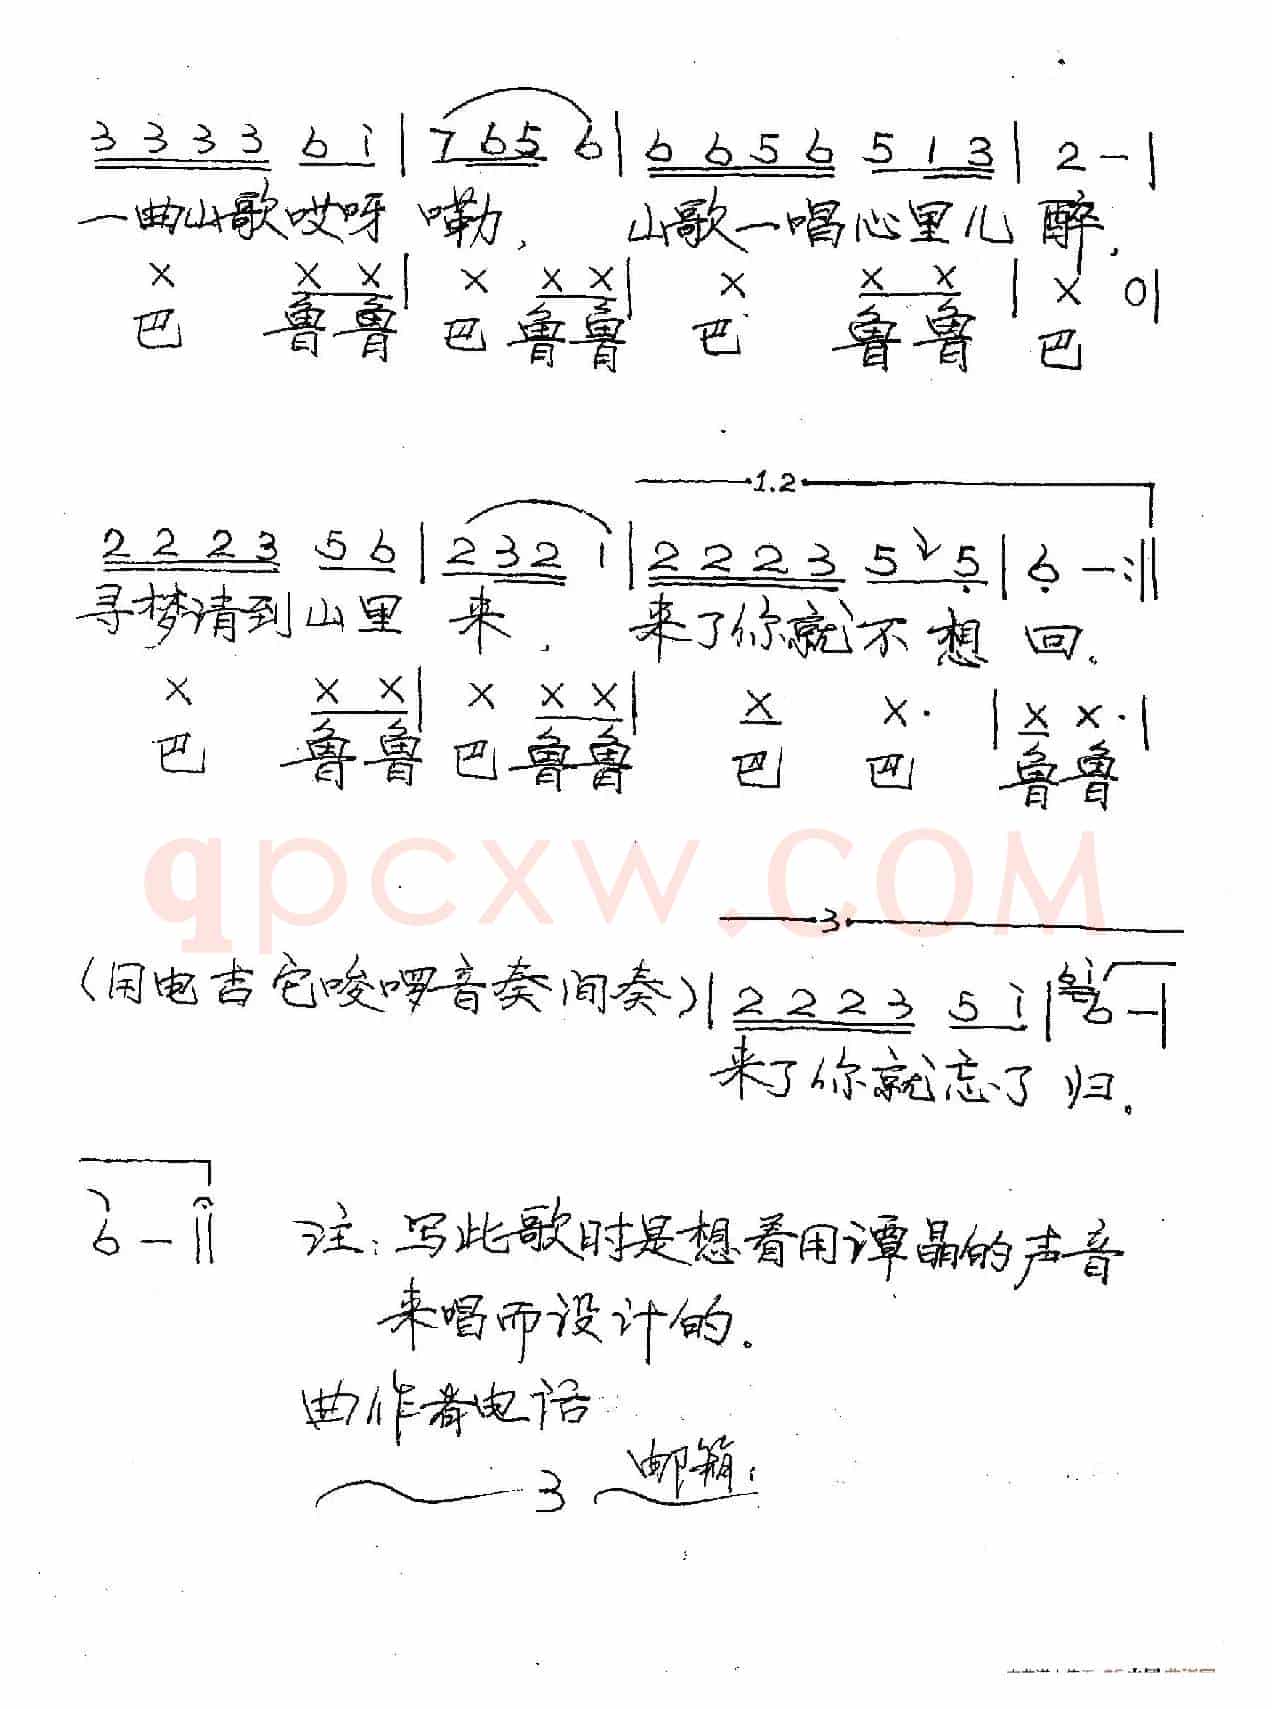 3 3 3 3 6 i | 7 6 5 6 | 6 6 5 6 5 1 3 | 2 - |
一曲山歌哎呀 嘞, 山歌一唱心里儿 醉,
X X X | X X X | X X X | X 0 |
巴 鲁鲁 巴 鲁鲁 巴 鲁鲁 巴
1.2
2 2 2 3 5 6 | 2 3 2 i | 2 2 2 3 5 5 | 6 - :||
寻梦请到山里 来, 来了你就不想 回.
X X X | X X X | X X· | X X· |
巴 鲁鲁 巴 鲁鲁 巴 巴 鲁鲁
qpcxw.COM
3
(用电吉它唆啰音奏间奏) | 2 2 2 3 5 i | 6 i 6 - |
来了你就忘了 归.
6 - ||
注: 写此歌时是想着用谭晶的声音
来唱而设计的.
曲作者电话
邮箱:
3